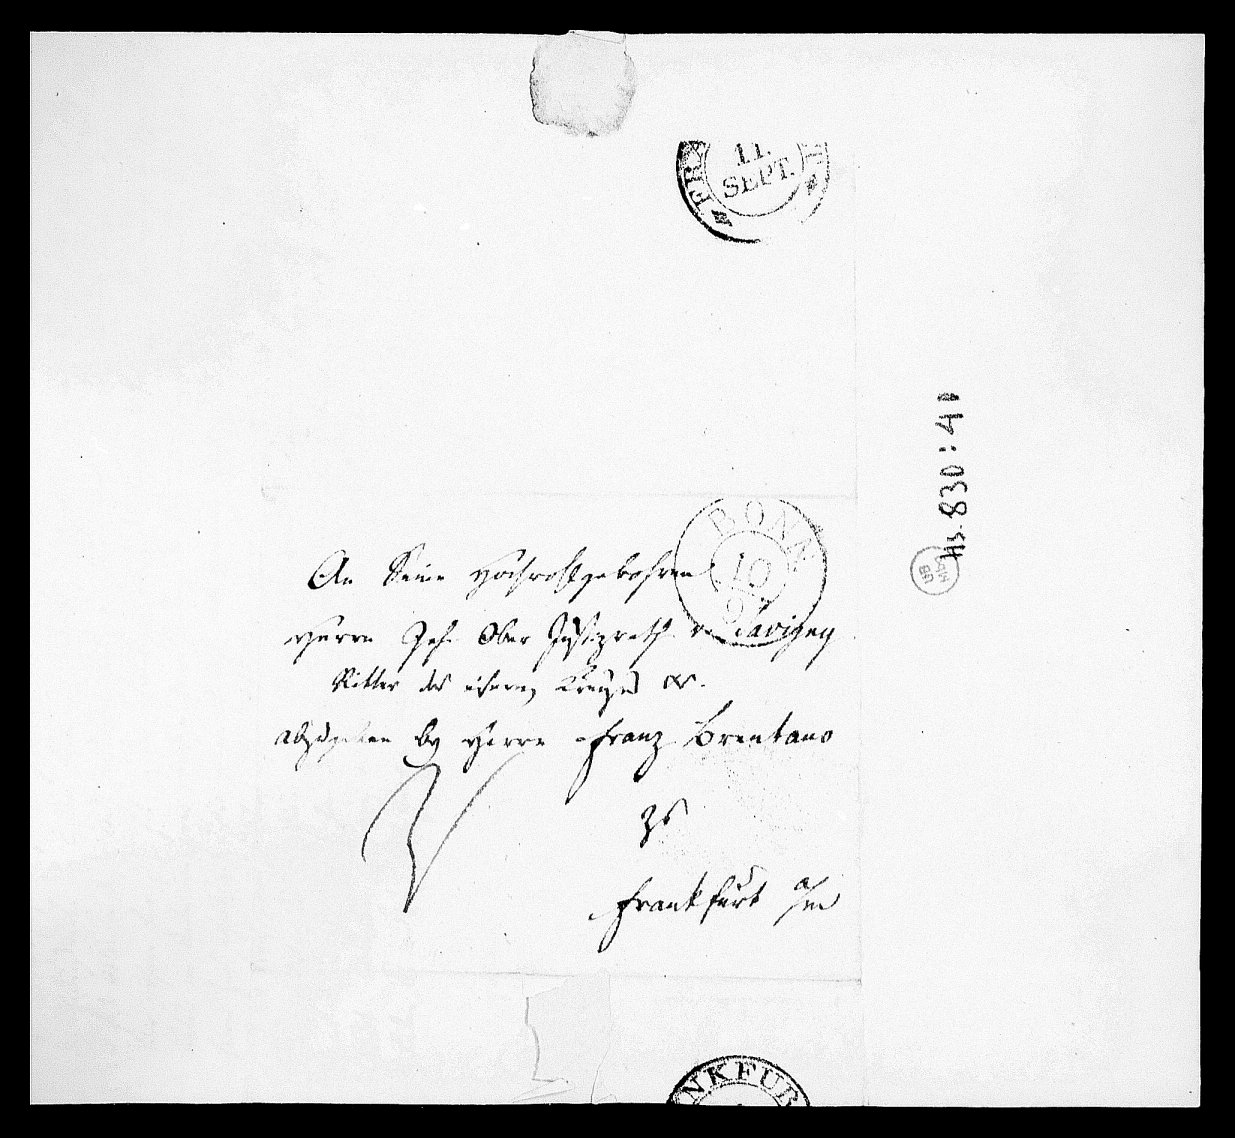 FRA
11.
SEPT.
Hs. 830: 40
UB
MBG
BONN
10
9
An Seine Hochwohlgebohren
Herrn Geh. Ober Justizrath v. Savigny
Ritter des eisernen Kreuzes
abzugeben by Herrn Franz Brentano
zu
Frankfurt a/m
NKFUR